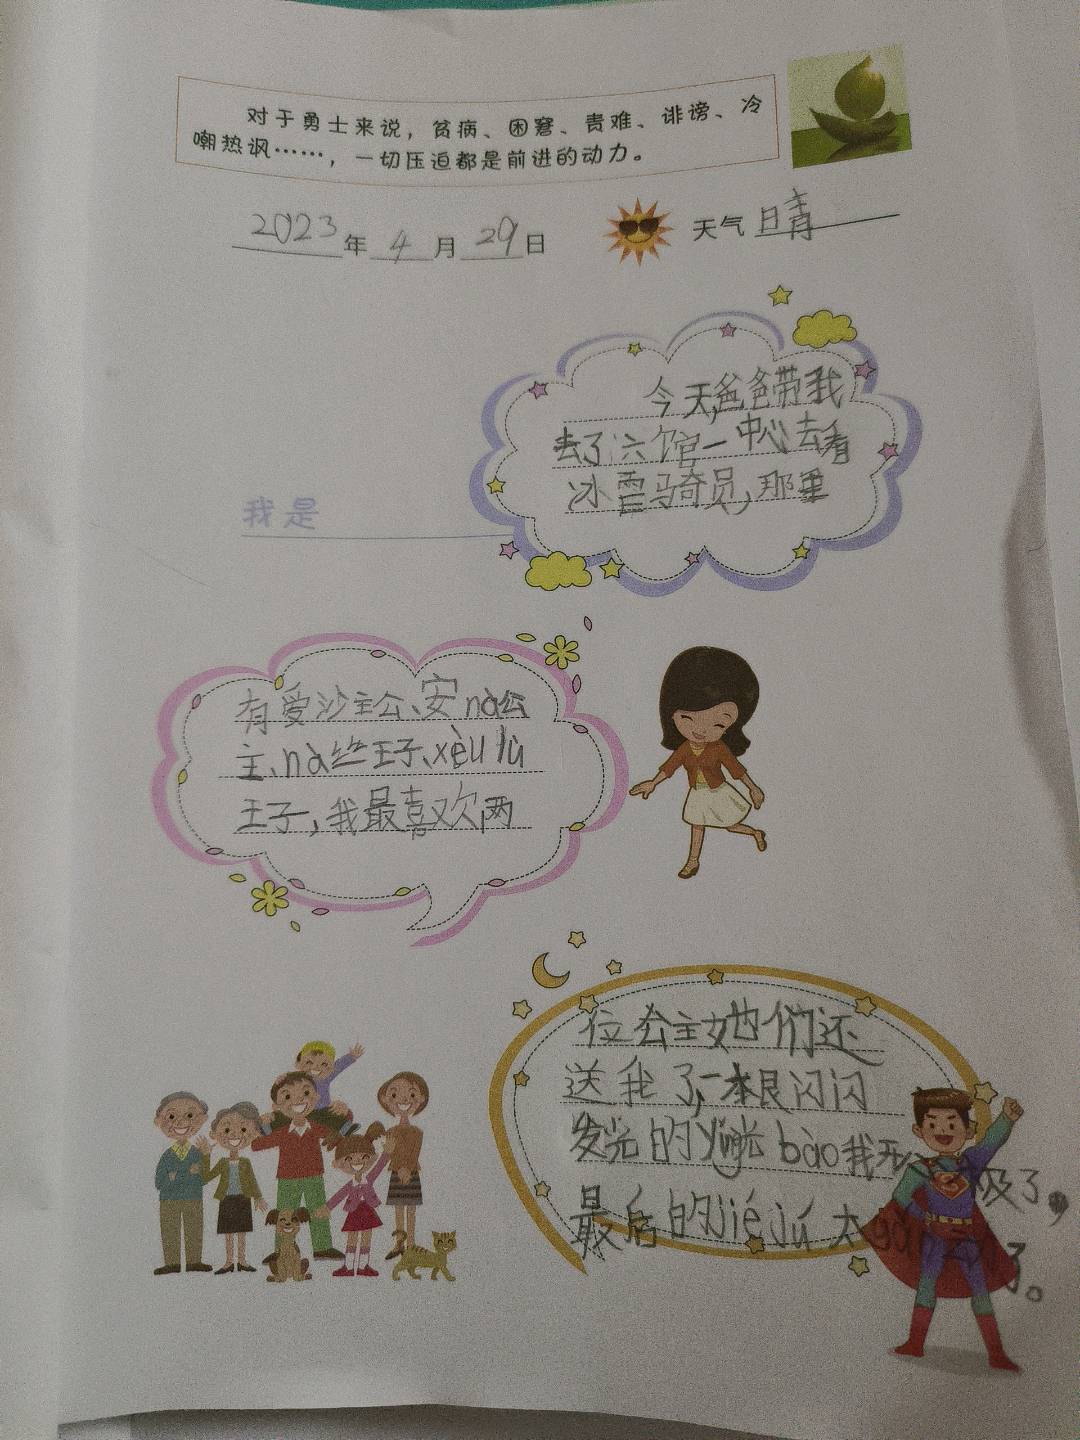 对于勇士来说，贫病、困窘、责难、诽谤、冷
嘲热讽……，一切压迫都是前进的动力。
2023年4月29日 天气 晴
今天,爸爸带我
去了六馆一中心去看
冰雪骑员,那里
我是
有爱沙主公、安nà公
主、nà丝王子、xèu lù
王子,我最喜欢两
位公主她们还
送我了一本艮闪闪
发光的 bào我开 极了,
最后的jié jú太 了。